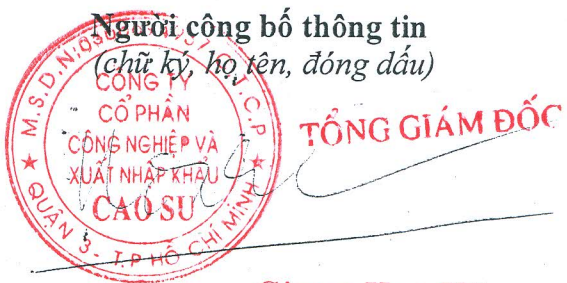 Người công bố thông tin
(chữ ký, họ tên, đóng dấu)
CÔNG TY
CỔ PHẦN
CÔNG NGHIỆP VÀ
XUẤT NHẬP KHẨU
CAO SU
QUẬN 3 - T.P HỒ CHÍ MINH
TỔNG GIÁM ĐỐC